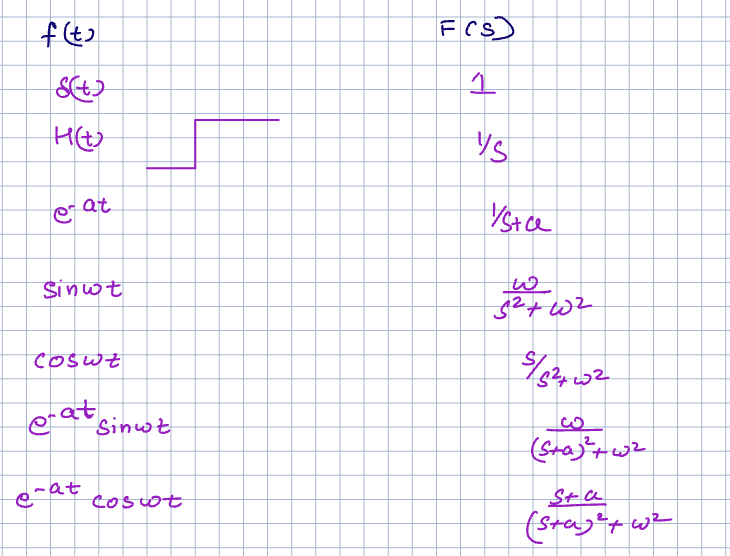 f(t) F(S)
δ(t) 1
H(t) 1/S
e^-at 1/S+a
sinωt ω/S²+ω²
cosωt S/S²+ω²
e^-at sinωt ω/(S+a)²+ω²
e^-at cosωt S+a/(S+a)²+ω²